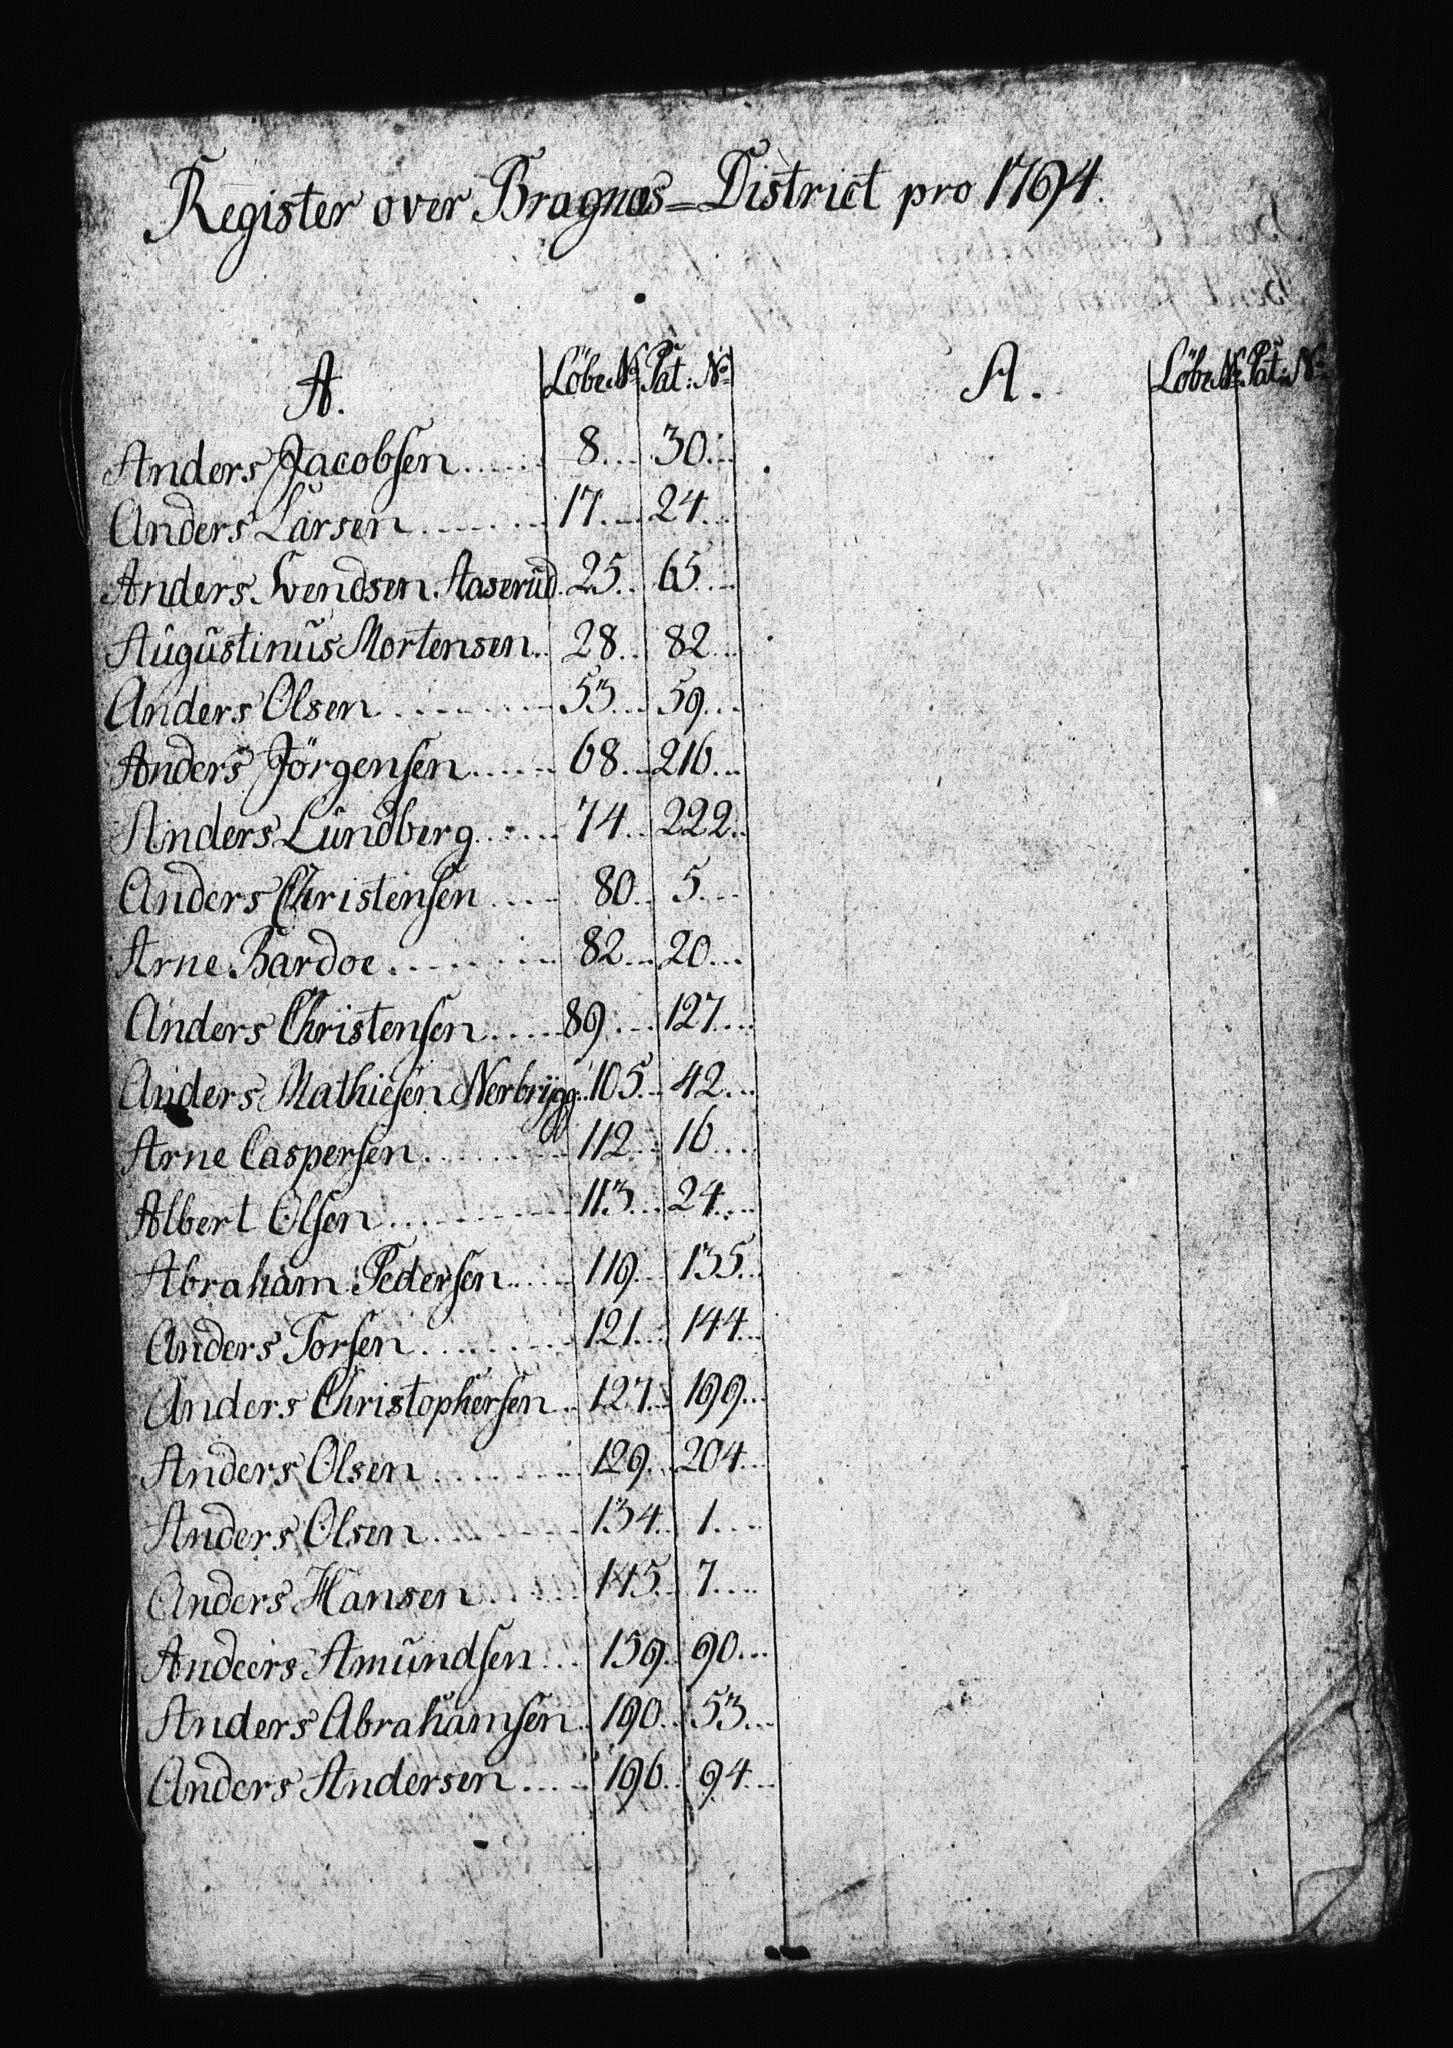 Register over Bragnæs=District pro 1794.
A. Löbe No Pat: No A. Löbe No Pat: No
Anders Jacobsen...... 8.... 30...
Anders Larsen........ 17.... 24...
Anders Svendsen Aaserud. 25... 65...
Augustinus Mortensen.. 28... 82...
Anders Olsen......... 53... 59...
Anders Jörgensen...... 68... 216...
Anders Lundberg...... 74... 222..
Anders Christensen.... 80.. 5....
Arne Bardoe......... 82... 20...
Anders Christensen.....89.... 127....
Anders Mathiesen Nerbrygg..105... 42...
Arne Caspersen........ 112... 16....
Albert Olsen......... 113... 24....
Abraham Pedersen..... 119... 135...
Anders Torsen........ 121... 144...
Anders Christophersen.. 127... 199...
Anders Olsen........ 129... 204...
Anders Olsen........ 134.. 1....
Anders Hansen...... 145.. 7....
Andeers Amundsen... 159.. 90...
Anders Abrahamsen.. 190.. 53...
Anders Andersen..... 196.. 94...